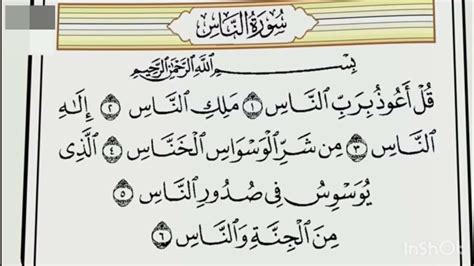 سُورَةُ النَّاسِ
بِسْمِ اللَّهِ الرَّحْمَٰنِ الرَّحِيمِ
قُلْ أَعُوذُ بِرَبِّ النَّاسِ ١ مَلِكِ النَّاسِ ٢ إِلَٰهِ
النَّاسِ ٣ مِن شَرِّ الْوَسْوَاسِ الْخَنَّاسِ ٤ الَّذِي
يُوَسْوِسُ فِي صُدُورِ النَّاسِ ٥
مِنَ الْجِنَّةِ وَالنَّاسِ ٦
InShOt